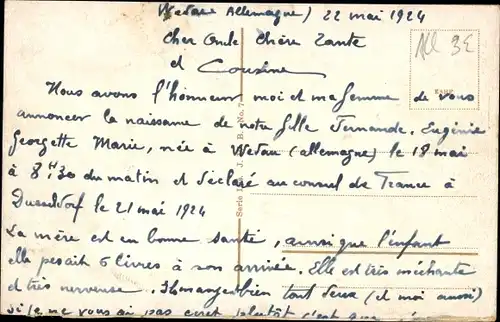 Wedau Allemagne) 22 mai 1924
All 3E
Cher Oncle Chère Tante
et Cousine
Nous avons l'honneur moi et ma femme de vous
annoncer la naissance de notre fille Fernande. Eugénie
Georgette Marie, née à Wedau (allemagne) le 18 mai
à 8H30 du matin et déclaré au consul de France à
Dusseldorf le 21 mai 1924
La mère est en bonne santé, ainsi que l'enfant
elle pesait 6 livres à son arrivée. Elle est très méchante
et très nerveuse. Ils mangent bien tout deux (et moi aussi)
si je ne vous ai pas ecrit plutôt c'est que
Serie